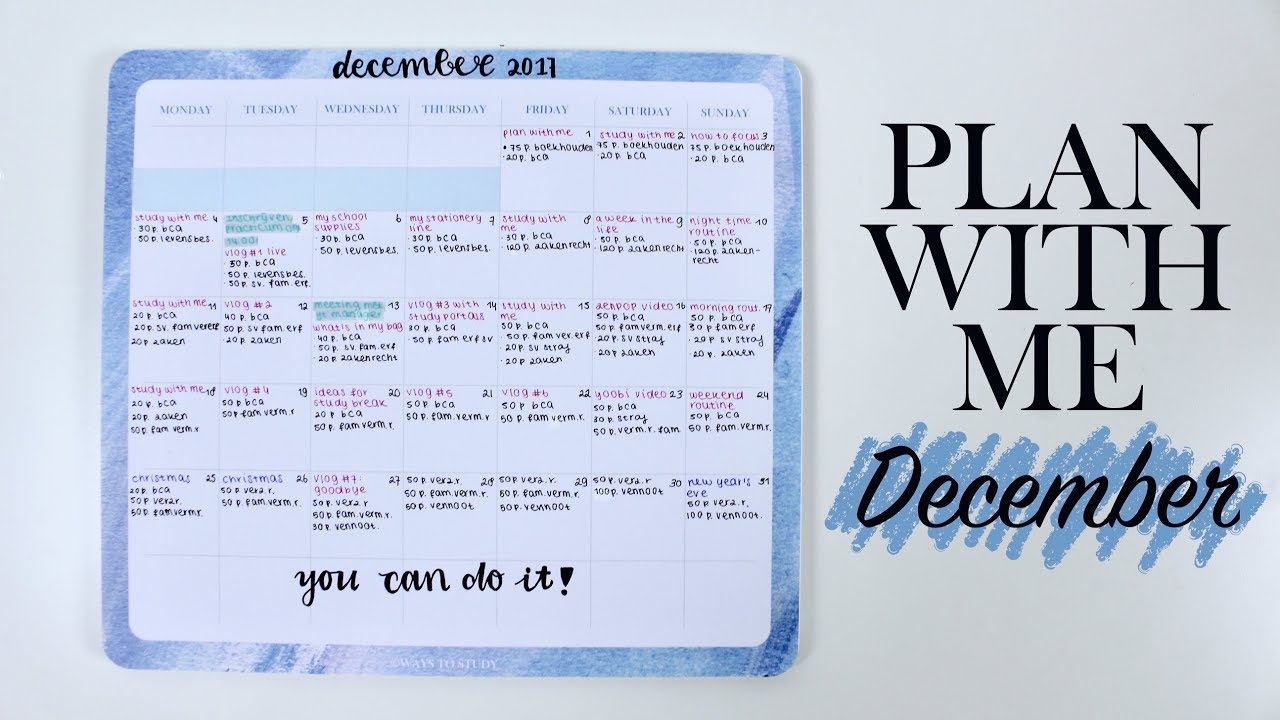 december 2017
MONDAY TUESDAY WEDNESDAY THURSDAY FRIDAY SATURDAY SUNDAY
plan with me 1
• 75 p. boekhouden
· 20 p. bca
study with me 2
75 p. boekhouden
20 p. bca
how to focus 3
75 p. boekhouden
· 20 p. bca
study with me 4
· 30 p. bca
50 p. levensbes.
inschrijven 5
practicum om
14.00!
vlog #1 live
· 50 p. bca
50 p. levensbes.
50 p. sv. fam. erf.
my school 6
supplies
· 30 p. bca
50 p. levensbes.
my stationery 7
line
· 30 p. bca
· 50 p. levensbes.
study with 8
me
· 50 p. bca
· 120 p. zakenrecht
a week in the 9
life
· 50 p. bca
· 120 p. zakenrecht
night time 10
routine
50 p. bca
· 120 p. zaken-
recht
study with me 11
20 p. bca
20 p. sv.
20 p. zaken
vlog #2 12
40 p. bca
50 p. sv. fam. erf
· 20 p. zaken
meeting met 13
manager
what's in my bag
40 p. bca
50 p. sv. fam. erf.
20 p. zakenrecht
vlog #3 with 14
studyportals
20 p. bca
· 50 p. fam. erf sv
study with 15
me
50 p. bca
50 p. fam ver. erf
· 20 p. sv straf
· 20 p. zaken
zenpop video 16
50 p. bca
50 p. famverm. erf
20 p. sv straf
20 p. zaken
morning rou. 17
50 p. bca
30 p. fam erf
· 20 p. sv straf
· 20 p. zaken
study with me 18
50 p. bca
20 p. zaken
50 p. fam verm.
vlog #4 19
50 p. bca
50 p. fam verm. r.
ideas for 20
study break
20 p. bca
50 p. fam. verm. r.
vlog #5 21
50 p. bca
50 p. fam. verm. r.
vlog #6 22
50 p. bca
50 p. fam. verm. r.
yoobi video 23
50 p. bca
30 p. straf
50 p. verm. r. fam.
weekend 24
routine
50 p. bca
50 p. fam. verm.
christmas 25
20 p. bca
50 p. verz r.
50 p. fam. verm. r.
christmas 26
50 p. verz. r.
50 p. fam. verm. r.
vlog #7: 27
goodbye
50 p. verz. r.
50 p. fam verm. r.
30 p. vennoot.
50 p. verz. r. 28
50 p. fam. verm. r.
50 p. vennoot
50 p. verz. r. 29
50 p. fam. verm. r.
50 p. vennoot
50 p. verz. r. 30
100 p. vennoot
new year's 31
eve
50 p. verz r.
100 p. vennoot.
you can do it!
©WAYS TO STUDY
PLAN
WITH
ME
December